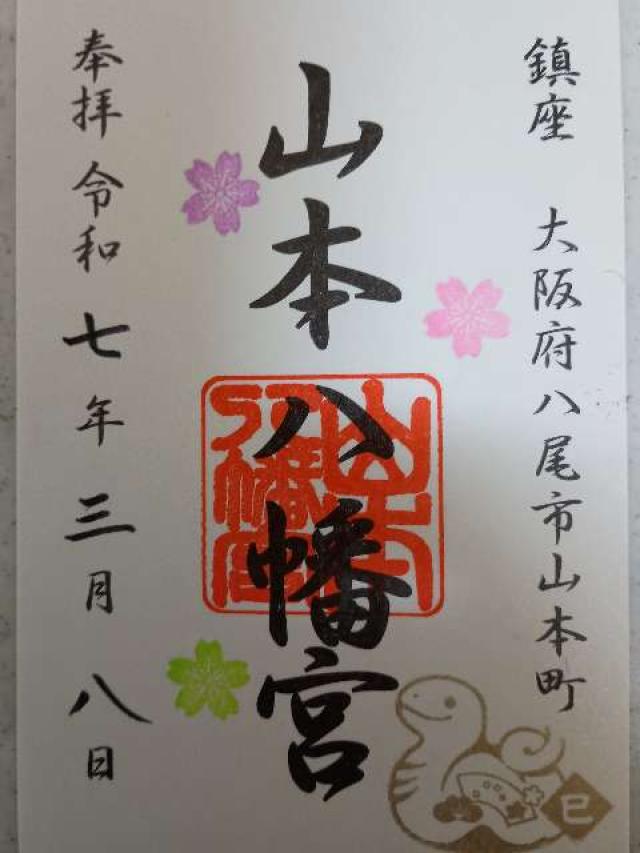 鎮座 大阪府八尾市山本町
山本八幡宮
山本
八幡宮
奉拝 令和七年三月八日
巳